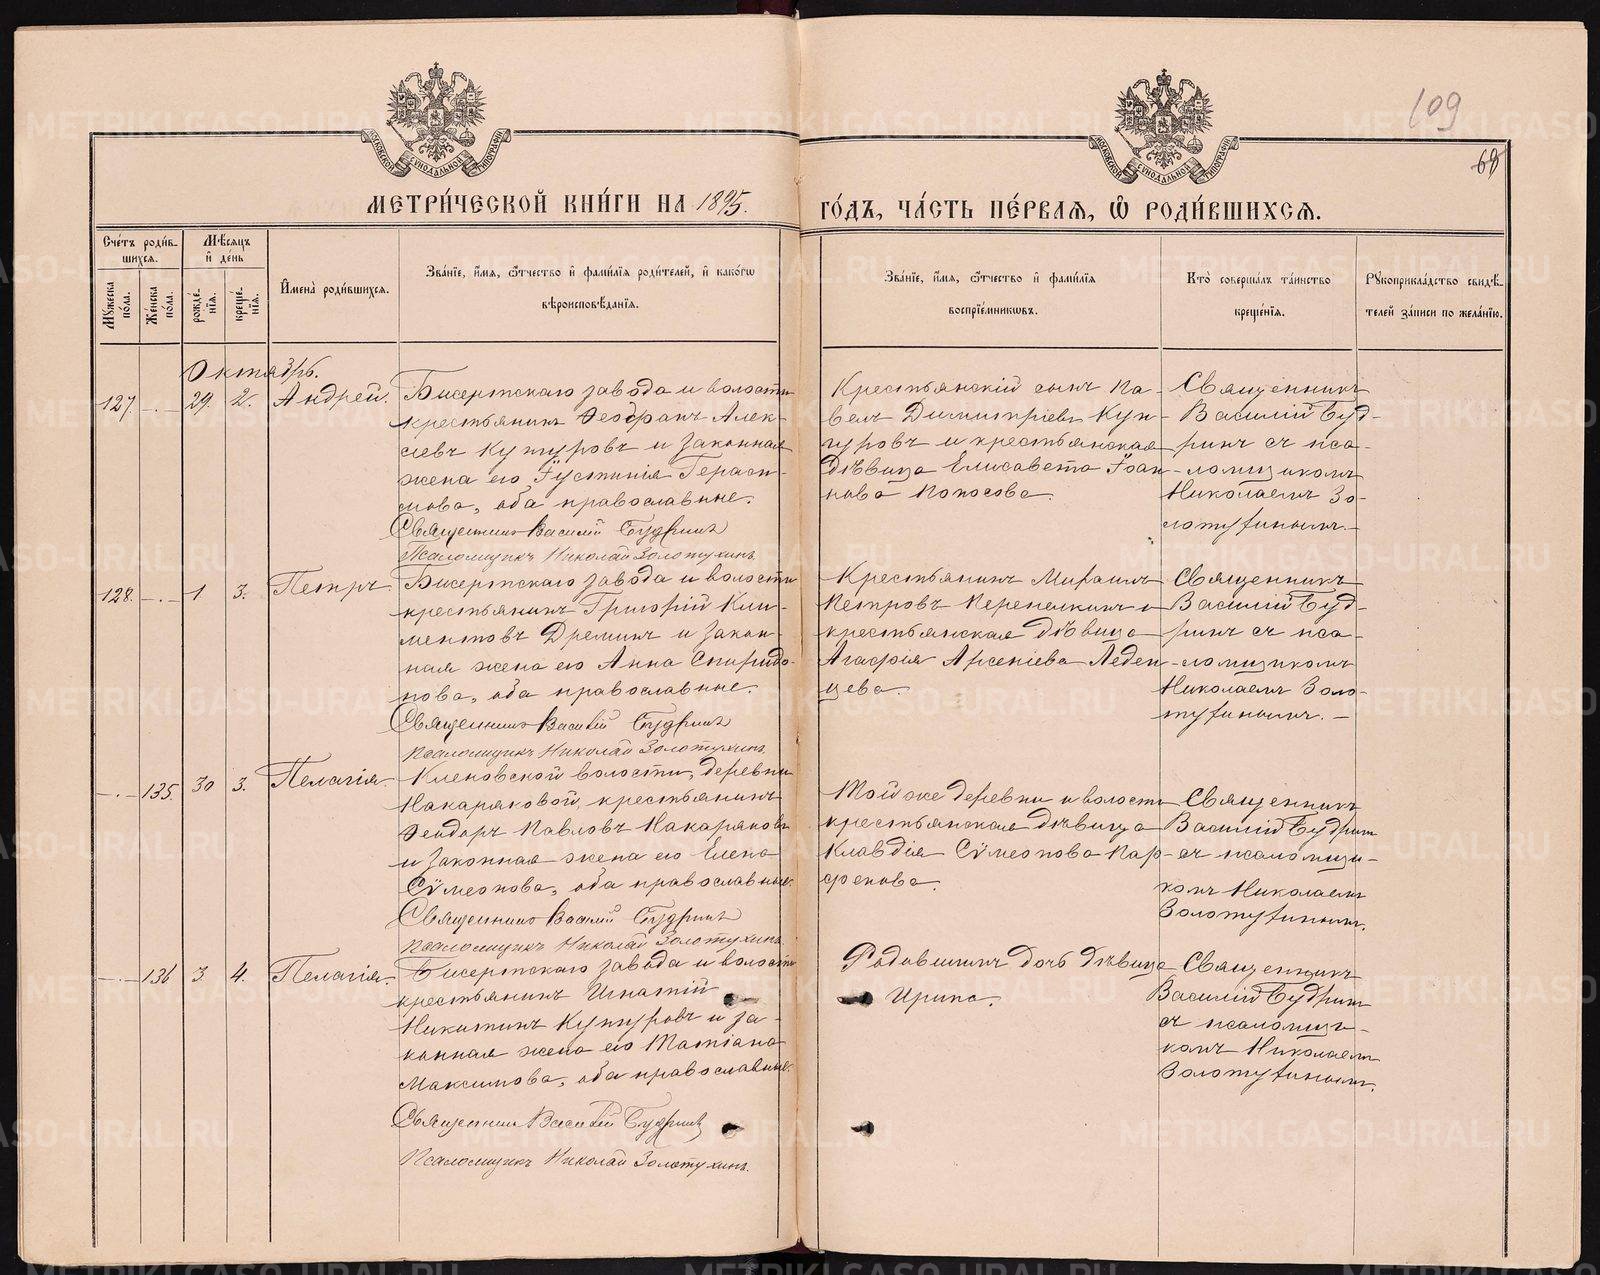 109
68
МЕТРИ́ЧЕСКОЙ КНИ́ГИ НА 1895.
ГО́ДЪ, ЧА́СТЬ ПЕ́РВАЯ, Ѽ РОДИ́ВШИХСЯ.
Сче́тъ роди́в-
шихся.
Мужеска по́ла.
Же́нска по́ла.
Мѣ́сяцъ
и҆ де́нь
рожде́-
нїя.
креще́-
нїя.
И҆мена̀ роди́вшихся.
Зва́нїе, и҆́мя, ѻ҆́тчество и҆ фами́лїя роди́телей, и҆ како́гѡ
вѣроисповѣ́данїя.
Зва́нїе, и҆́мя, ѻ҆́тчество и҆ фами́лїя
воспрїе́мникѡвъ.
Кто̀ соверша́лъ та́инство
креще́нїя.
Рꙋкоприкла́дство свидѣ́-
телей за́писи по жела́нїю.
Октябрь.
127. -.- 29. 2. Андрей.
Бисертскаго завода и волости
крестьянинъ Феофанъ Алек-
сѣевъ Кутуровъ и законная
жена его Іустинія Гераси-
мова, оба православные.
Священникъ Василій Будринъ
Псаломщикъ Николай Золотухинъ
Крестьянскій сынъ Па-
велъ Димитріевъ Кун-
гуровъ и крестьянская
дѣвица Елисавета Іоан-
нова Попосова.
Священникъ
Василій Буд-
ринъ съ пса-
ломщикомъ
Николаемъ Зо-
лотухинымъ.
128. -.- 1 3. Петръ
Бисертскаго завода и волости
крестьянинъ Григорій Кли-
ментовъ Дреминъ и закон-
ная жена его Анна Спиридо-
нова, оба православные.
Священникъ Василій Будринъ
Псаломщикъ Николай Золотухинъ
Крестьянинъ Михаилъ
Петровъ Перепелкинъ и
крестьянская дѣвица
Агафія Арсеніева Леден-
цева.
Священникъ
Василій Буд-
ринъ съ пса-
ломщикомъ
Николаемъ Золо-
тухинымъ.
-.- 135. 30 3. Пелагія.
Кленовской волости, деревни
Накаряковой, крестьянинъ
Феодоръ Павловъ Накаряковъ
и законная жена его Елена
Сѵмеонова, оба православные.
Священникъ Василій Будринъ
Псаломщикъ Николай Золотухинъ.
Той же деревни и волости
крестьянская дѣвица
Клавдія Сѵмеонова Пар-
фенова.
Священникъ
Василій Будринъ
съ псаломщи-
комъ Николаемъ
Золотухинымъ.
-.- 136 3 4. Пелагія.
Бисертскаго завода и волости
крестьянинъ Игнатій
Никитинъ Кутуровъ и за-
конная жена его Татіана
Максимова, оба православные.
Священникъ Василій Будринъ
Псаломщикъ Николай Золотухинъ.
Родившихъ дочь дѣвица
Ирина.
Священникъ
Василій Будринъ
съ псаломщи-
комъ Николаемъ
Золотухинымъ.